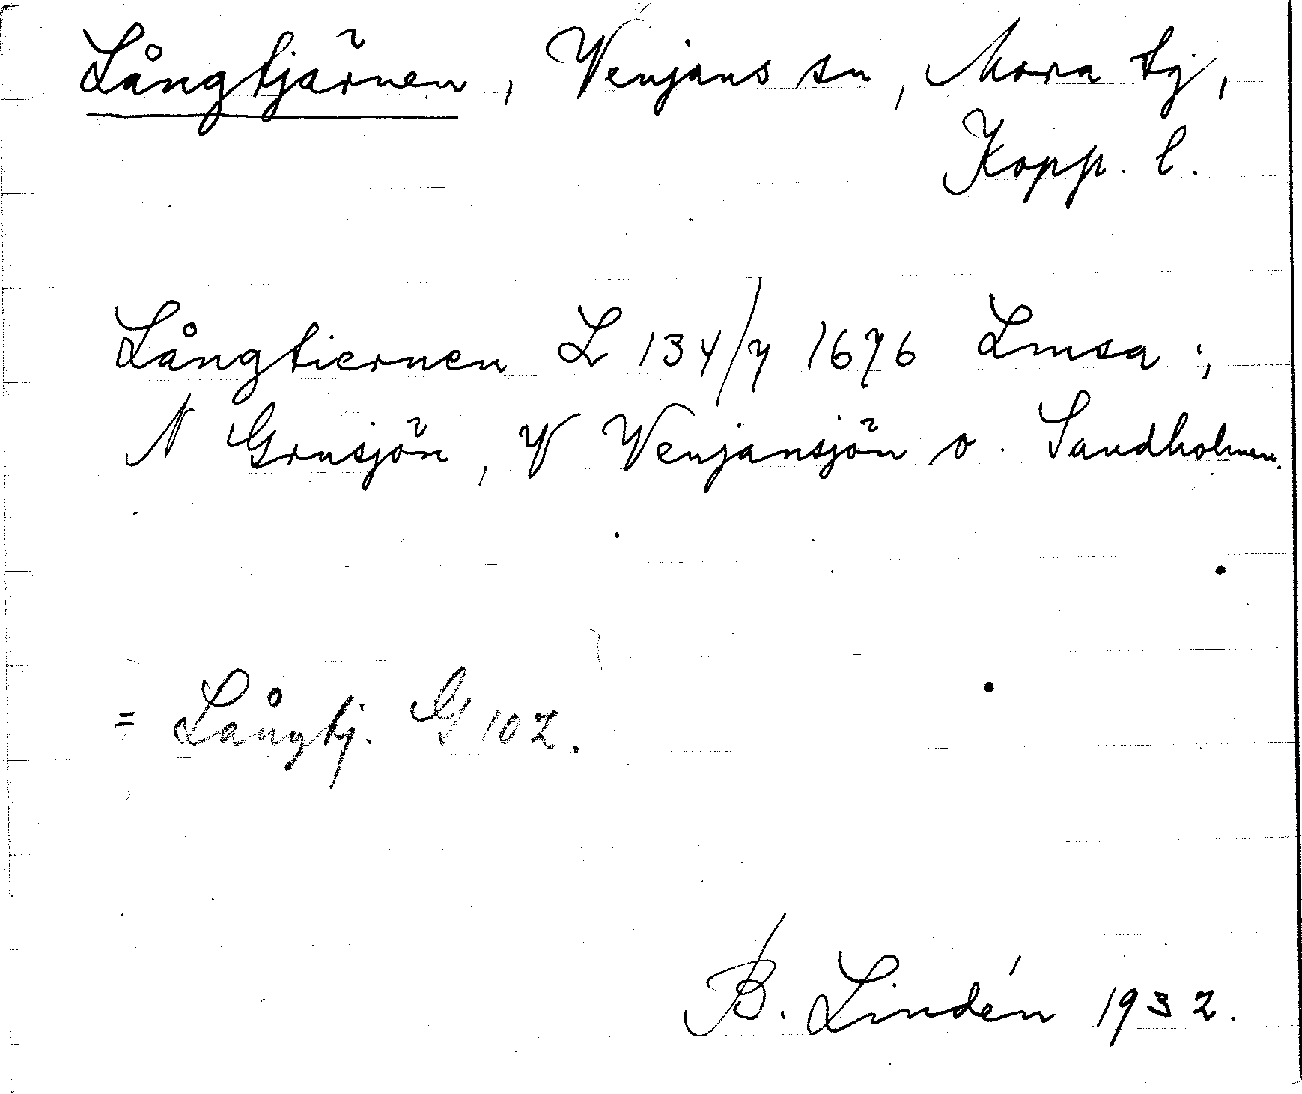 Långtjärnen, Venjans sn, Mora tg,
Kopp. l.
Långtiernen L 134/7 1676 Lmsa:,
N Grusjön, V Venjansjön o. Sandholmen.
= Långtj. G 102.
B. Lindén 1932.